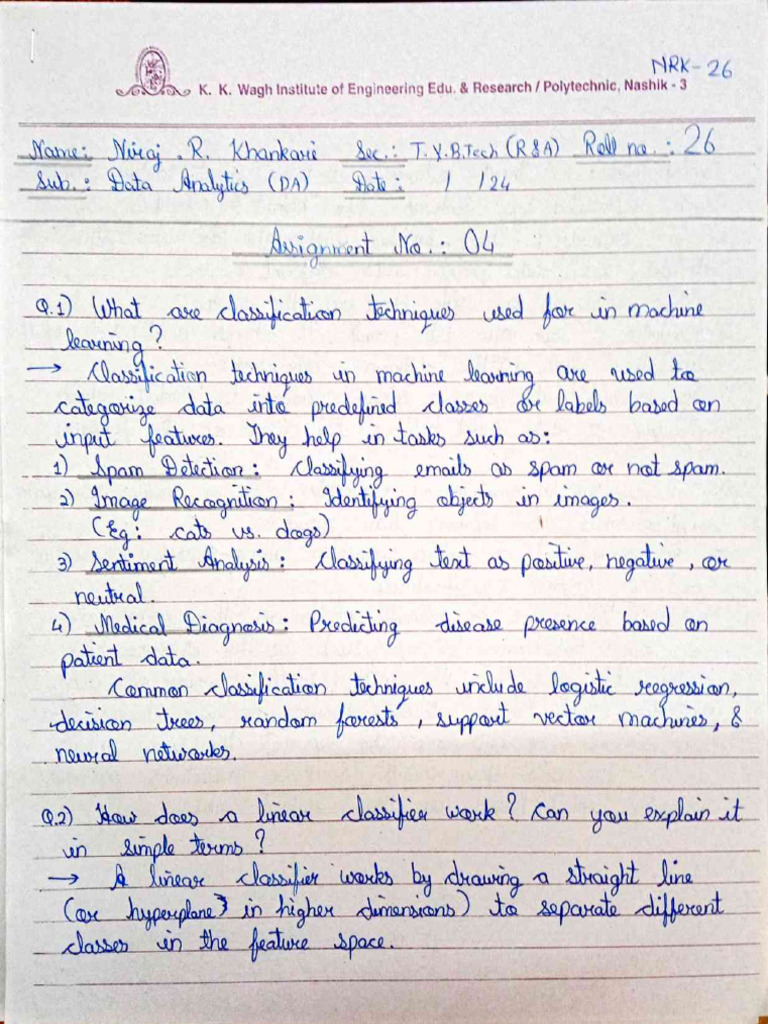 NRK-26
K. K. Wagh Institute of Engineering Edu. & Research / Polytechnic, Nashik - 3
Name: Niraj . R. Khankari Sec.: T.Y.B.Tech (R&A) Roll no.: 26
Sub.: Data Analytics (DA) Date: / /24
Assignment No.: 04
Q.1) What are classification techniques used for in machine
learning?
→ Classification techniques in machine learning are used to
categorize data into predefined classes or labels based on
input features. They help in tasks such as:
1) Spam Detection: Classifying emails as spam or not spam.
2) Image Recognition: Identifying objects in images.
(Eg: cats vs. dogs)
3) Sentiment Analysis: Classifying text as positive, negative, or
neutral.
4) Medical Diagnosis: Predicting disease presence based on
patient data.
Common classification techniques include logistic regression,
decision trees, random forests, support vector machines, &
neural networks.
Q.2) How does a linear classifier work? Can you explain it
in simple terms?
→ A linear classifier works by drawing a straight line
(or hyperplane in higher dimensions) to separate different
classes in the feature space.